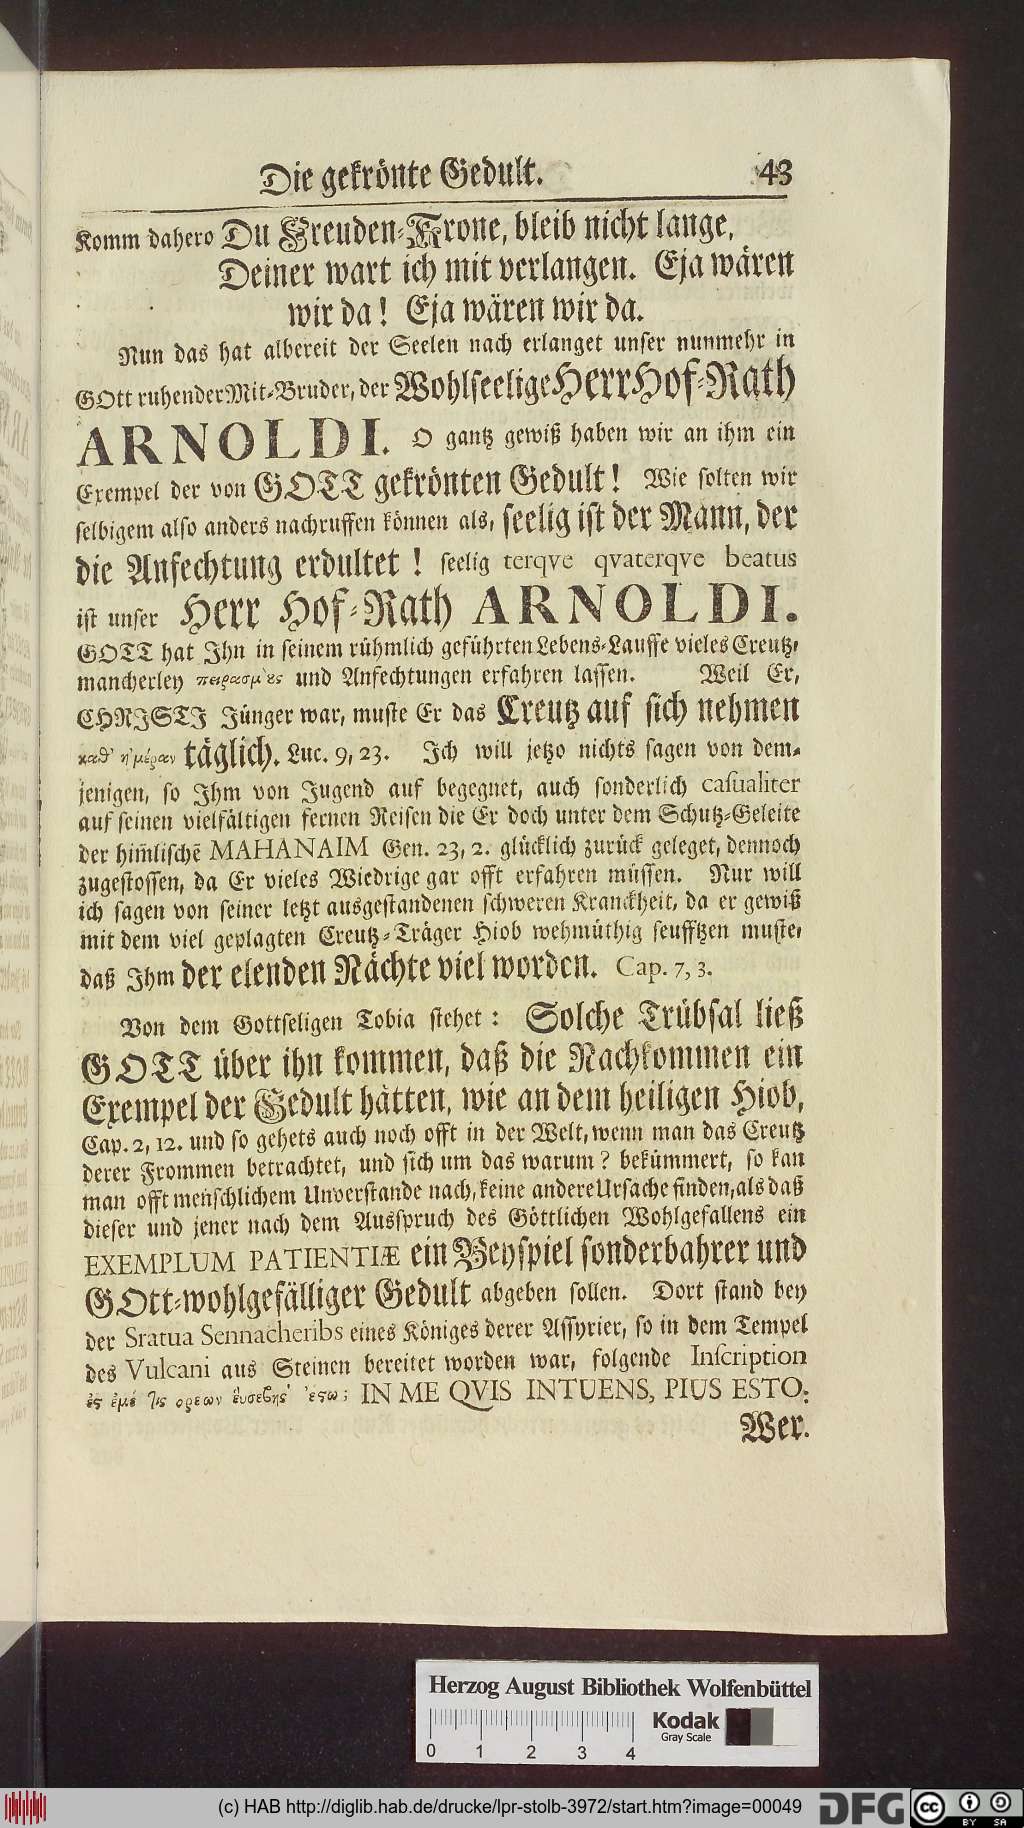 Die gekrönte Gedult. 43
Komm dahero Du Freuden-Krone, bleib nicht lange,
Deiner wart ich mit verlangen. Eja wären
wir da! Eja wären wir da.
Nun das hat albereit der Seelen nach erlanget unser nunmehr in
GOtt ruhender Mit-Bruder, der Wohlseelige Herr Hof-Rath
ARNOLDI. O gantz gewiß haben wir an ihm ein
Exempel der von GOTT gekrönten Gedult! Wie solten wir
selbigem also anders nachruffen können als, seelig ist der Mann, der
die Anfechtung erdultet! seelig terqve qvaterqve beatus
ist unser Herr Hof-Rath ARNOLDI.
GOTT hat Ihn in seinem rühmlich geführten Lebens-Lauffe vieles Creutz,
mancherley und Anfechtungen erfahren lassen. Weil Er,
CHRISTI Jünger war, muste Er das Creutz auf sich nehmen
καθ' ἡμέραν täglich. Luc. 9, 23. Ich will jetzo nichts sagen von dem-
jenigen, so Ihm von Jugend auf begegnet, auch sonderlich casualiter
auf seinen vielfältigen fernen Reisen die Er doch unter dem Schutz-Geleite
der him̄lischē MAHANAIM Gen. 23, 2. glücklich zurück geleget, dennoch
zugestossen, da Er vieles Wiedrige gar offt erfahren müssen. Nur will
ich sagen von seiner letzt ausgestandenen schweren Kranckheit, da er gewiß
mit dem viel geplagten Creutz-Träger Hiob wehmüthig seufftzen muste,
daß Ihm der elenden Nächte viel worden. Cap. 7, 3.
Von dem Gottseligen Tobia stehet: Solche Trübsal ließ
GOTT über ihn kommen, daß die Nachkommen ein
Exempel der Gedult hätten, wie an dem heiligen Hiob,
Cap. 2, 12. und so gehets auch noch offt in der Welt, wenn man das Creutz
derer Frommen betrachtet, und sich um das warum? bekümmert, so kan
man offt menschlichem Unverstande nach, keine andere Ursache finden, als daß
dieser und jener nach dem Ausspruch des Göttlichen Wohlgefallens ein
EXEMPLUM PATIENTIÆ ein Beyspiel sonderbahrer und
GOtt-wohlgefälliger Gedult abgeben sollen. Dort stand bey
der Sratua Sennacheribs eines Königes derer Assyrier, so in dem Tempel
des Vulcani aus Steinen bereitet worden war, folgende Inscription
ἐς ἐμέ τὶς ορεων ἐυσεβὴς ἔστω; IN ME QVIS INTUENS, PIUS ESTO:
Wer.
Herzog August Bibliothek Wolfenbüttel
0 1 2 3 4
Kodak
Gray Scale
(c) HAB http://diglib.hab.de/drucke/lpr-stolb-3972/start.htm?image=00049
DFG
cc BY SA